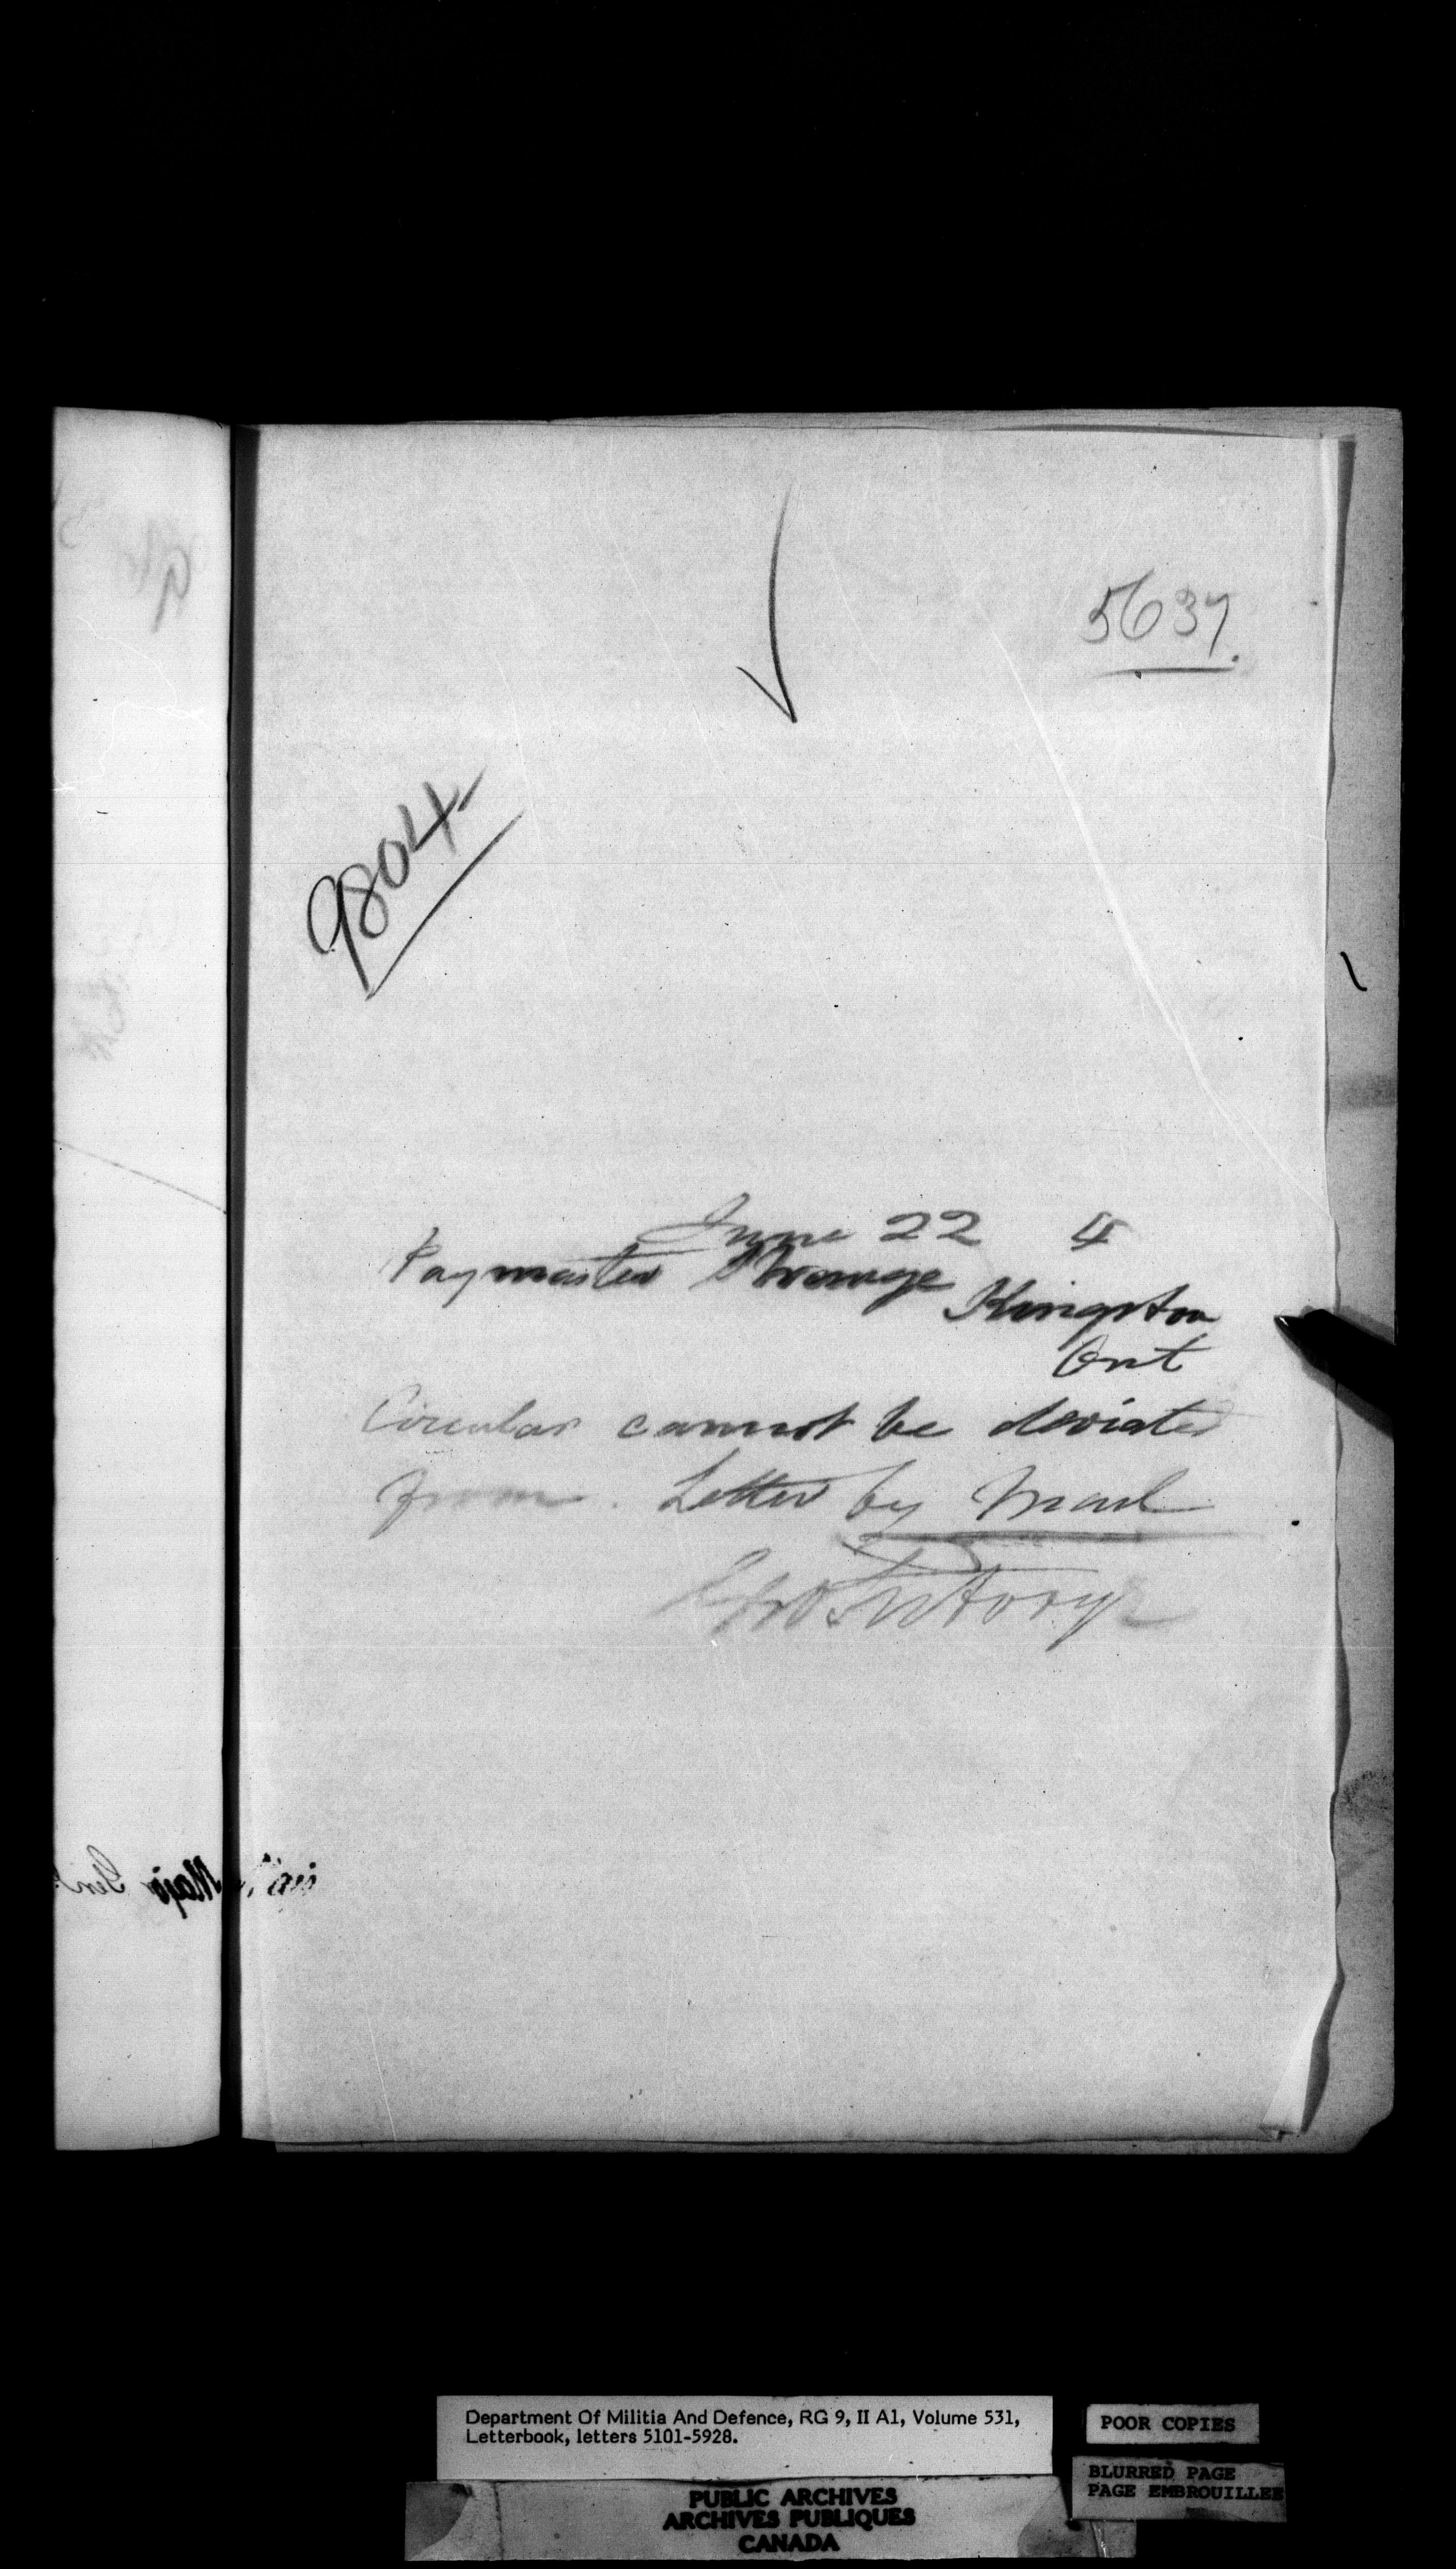 5637.
9804
June 22 4
Paymaster Strange
Kingston
Ont
Circular cannot be deviated
from. Letter by Mail
Department Of Militia And Defence, RG 9, II A1, Volume 531,
Letterbook, letters 5101-5928.
POOR COPIES
BLURRED PAGE
PAGE EMBROUILLEE
PUBLIC ARCHIVES
ARCHIVES PUBLIQUES
CANADA